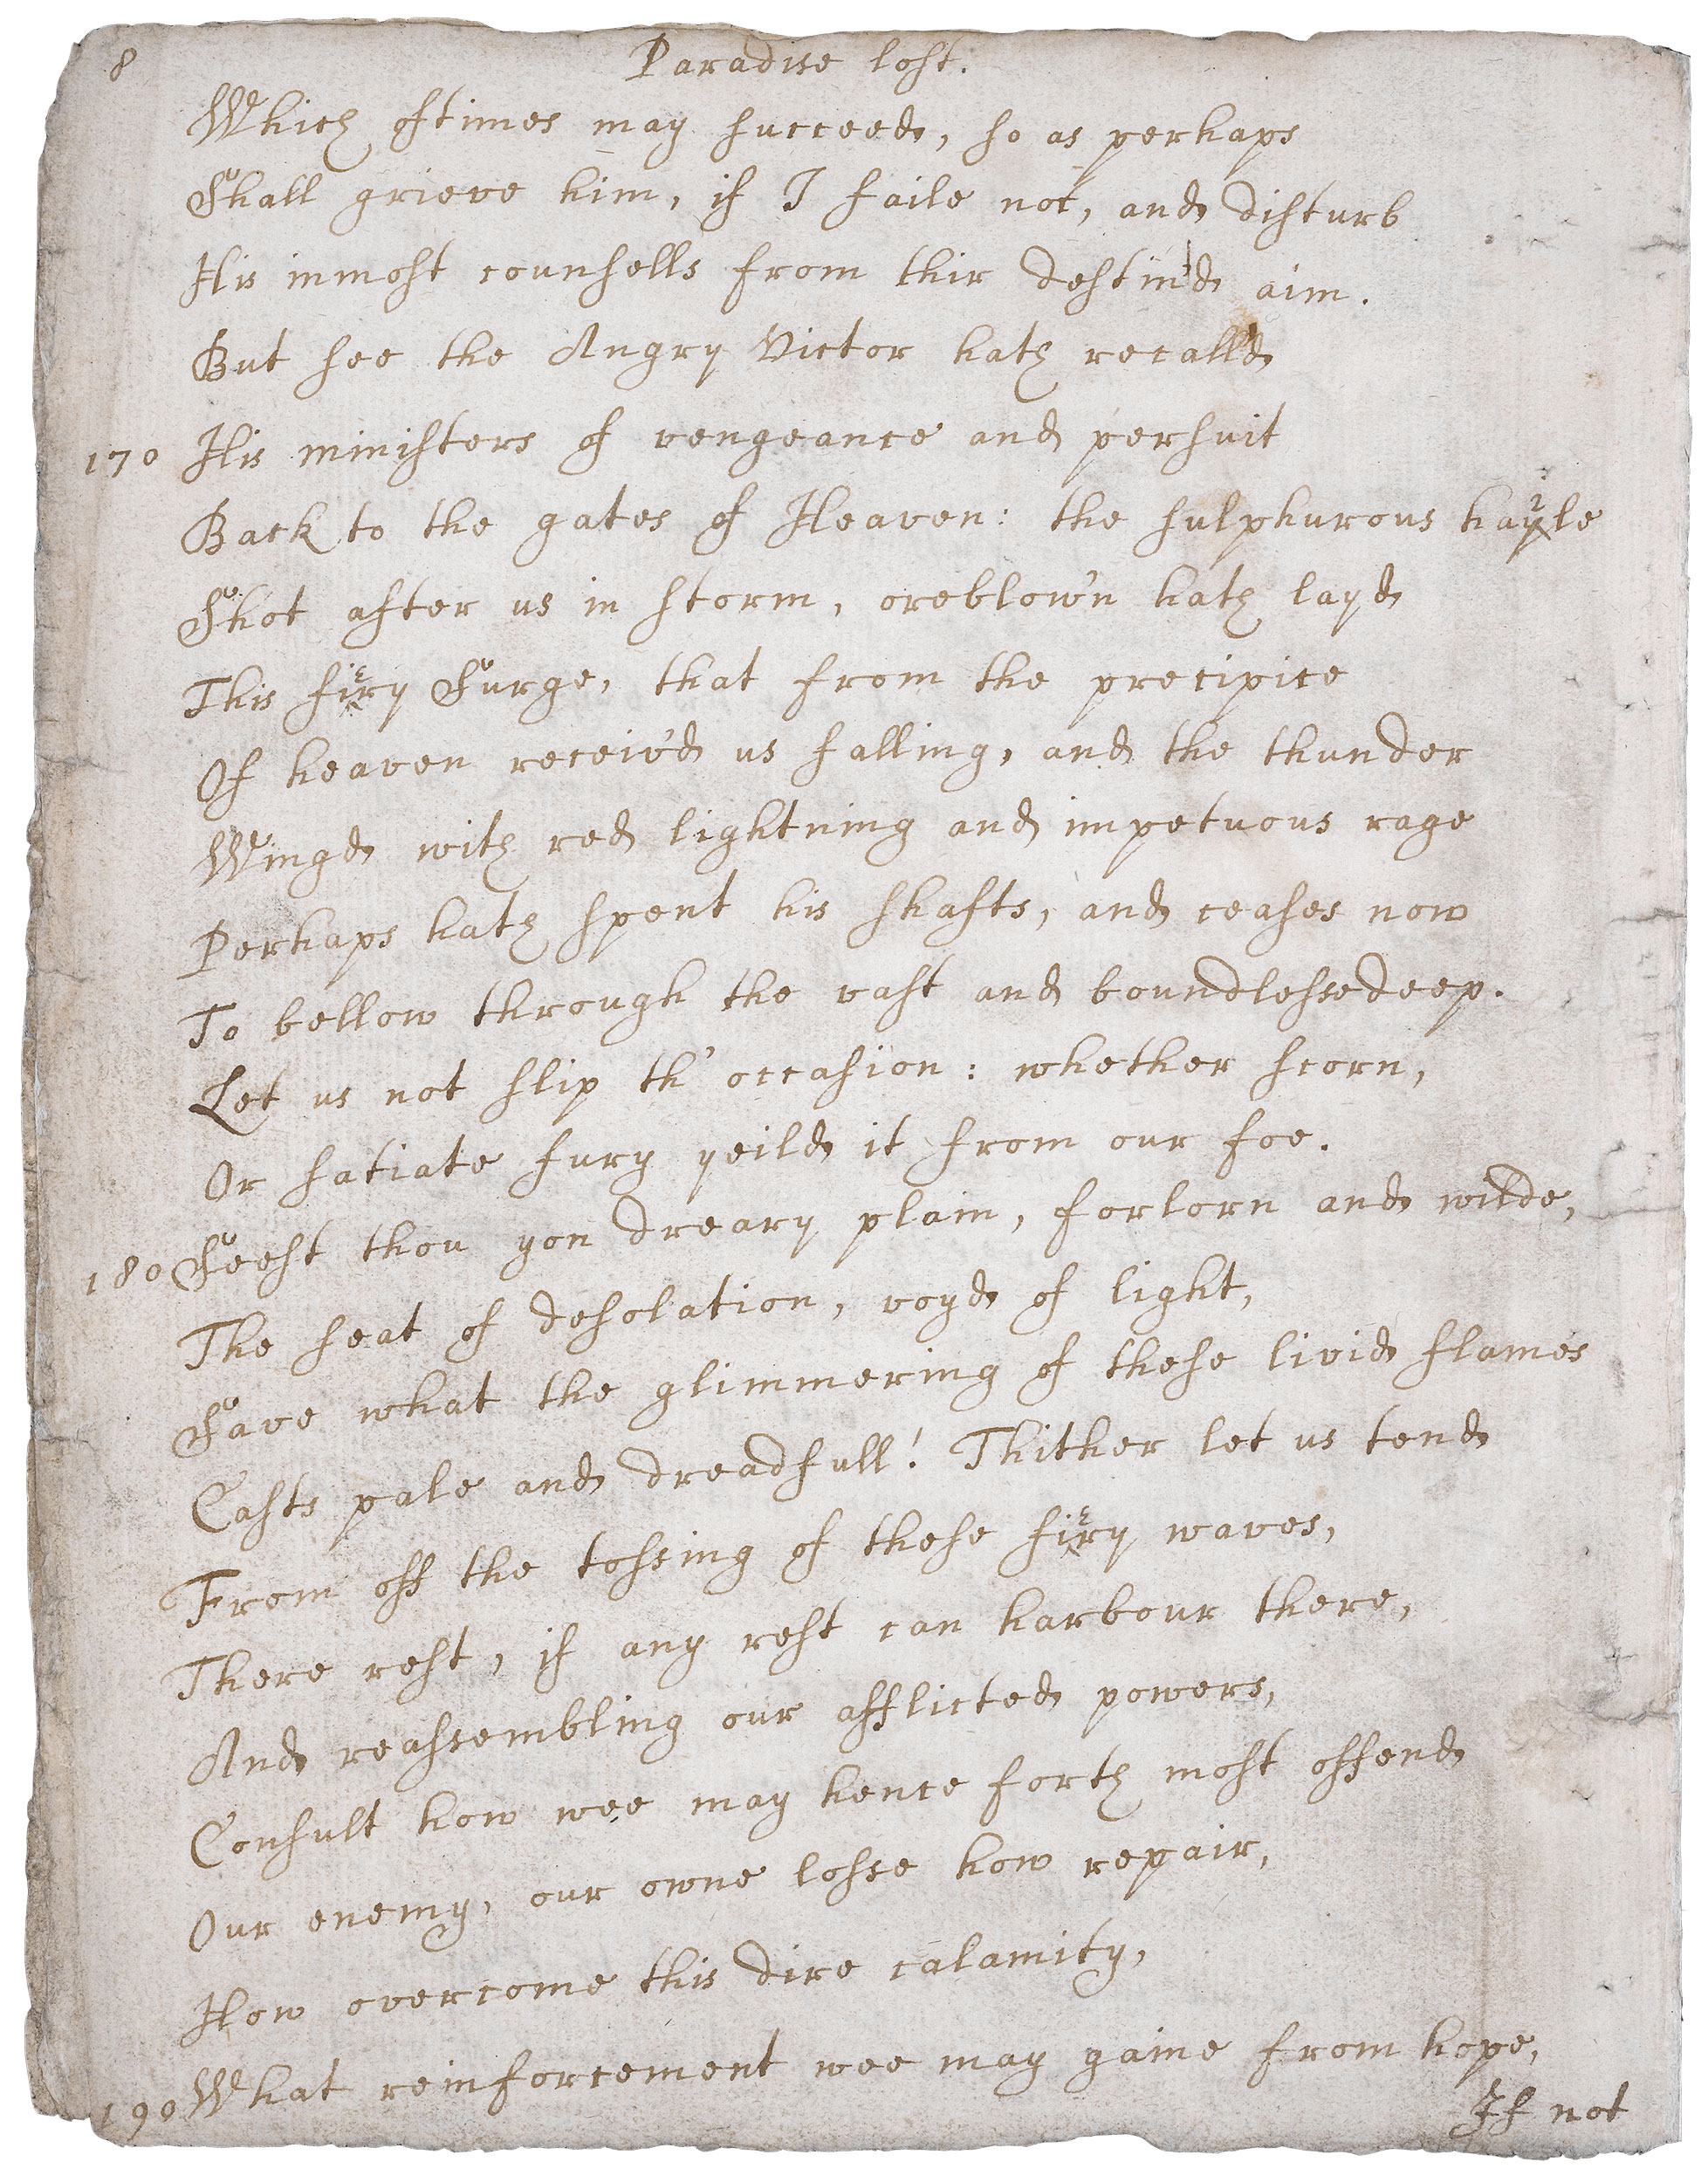 8 Paradise lost.
Which oftimes may succeed, so as perhaps
Shall grieve him, if I faile not, and disturb
His inmost counsells from thir destin'd aim.
But see the Angry Victor hath recall'd
170 His ministers of vengeance and persuit
Back to the gates of Heaven: the sulphurous hayle
Shot after us in storm, oreblow'n hath layd
This fiery Surge, that from the precipice
Of heaven receiv'd us falling, and the thunder
Wingd with red lightning and impetuous rage
Perhaps hath spent his shafts, and ceases now
To bellow through the vast and boundlesse deep.
Let us not slip th' occasion: whether scorn,
Or satiate fury yeild it from our foe.
180 Seest thou yon dreary plain, forlorn and wilde,
The seat of desolation, voyd of light,
Save what the glimmering of these livid flames
Casts pale and dreadfull! Thither let us tend
From off the tossing of these fiery waves,
There rest, if any rest can harbour there,
And reassembling our afflicted powers,
Consult how wee may hence forth most offend
Our enemy, our owne losse how repair,
How overcome this dire calamity,
190 What reinforcement wee may gaine from hope,
If not